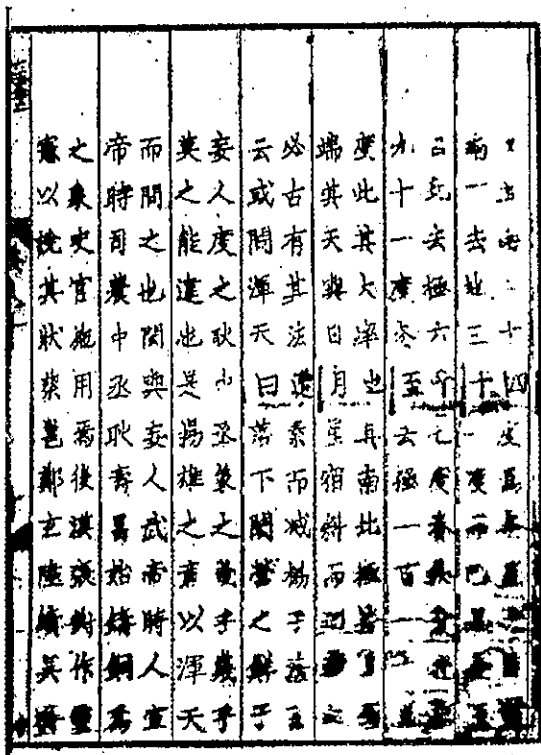 南二十四度為冬至
南下去地三十一度而已是夏至
日北去極六十七度春秋分去極
九十一度冬至去極一百一十五
度此其大率也其南北極持其兩
端其天與日月星宿斜而迴轉此
必古有其法遭秦而滅揚子法言
云或問渾天曰落下閎營之鮮于
妄人度之耿中丞象之幾乎幾乎
莫之能違也是揚雄之意以渾天
而問之也閎與妄人武帝時人宣
帝時司農中丞耿壽昌始鑄銅為
之象史官施用焉後漢張衡作靈
憲以說其狀蔡邕鄭玄陸績吳